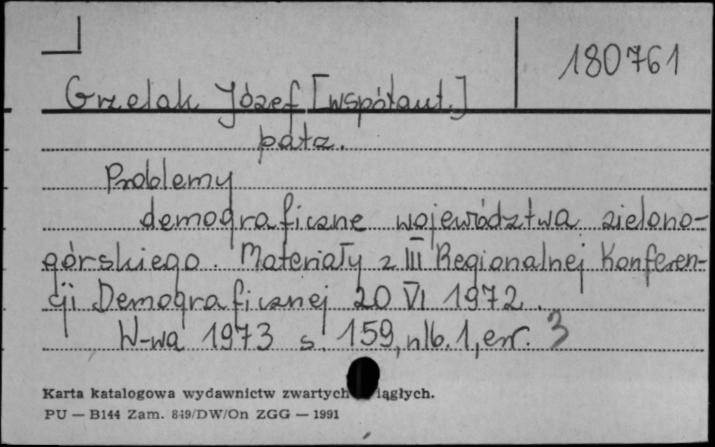 180761
Grzelak Józef [współaut.]
patz.
Problemy
demograficzne województwa zielono-
górskiego. Materiały z III Regionalnej Konferen-
cji Demograficznej 20 VI 1972.
W-wa 1973 s. 159, nlb. 1, err. 3
Karta katalogowa wydawnictw zwartych iągłych.
PU — B144 Zam. 849/DW/On ZGG — 1991